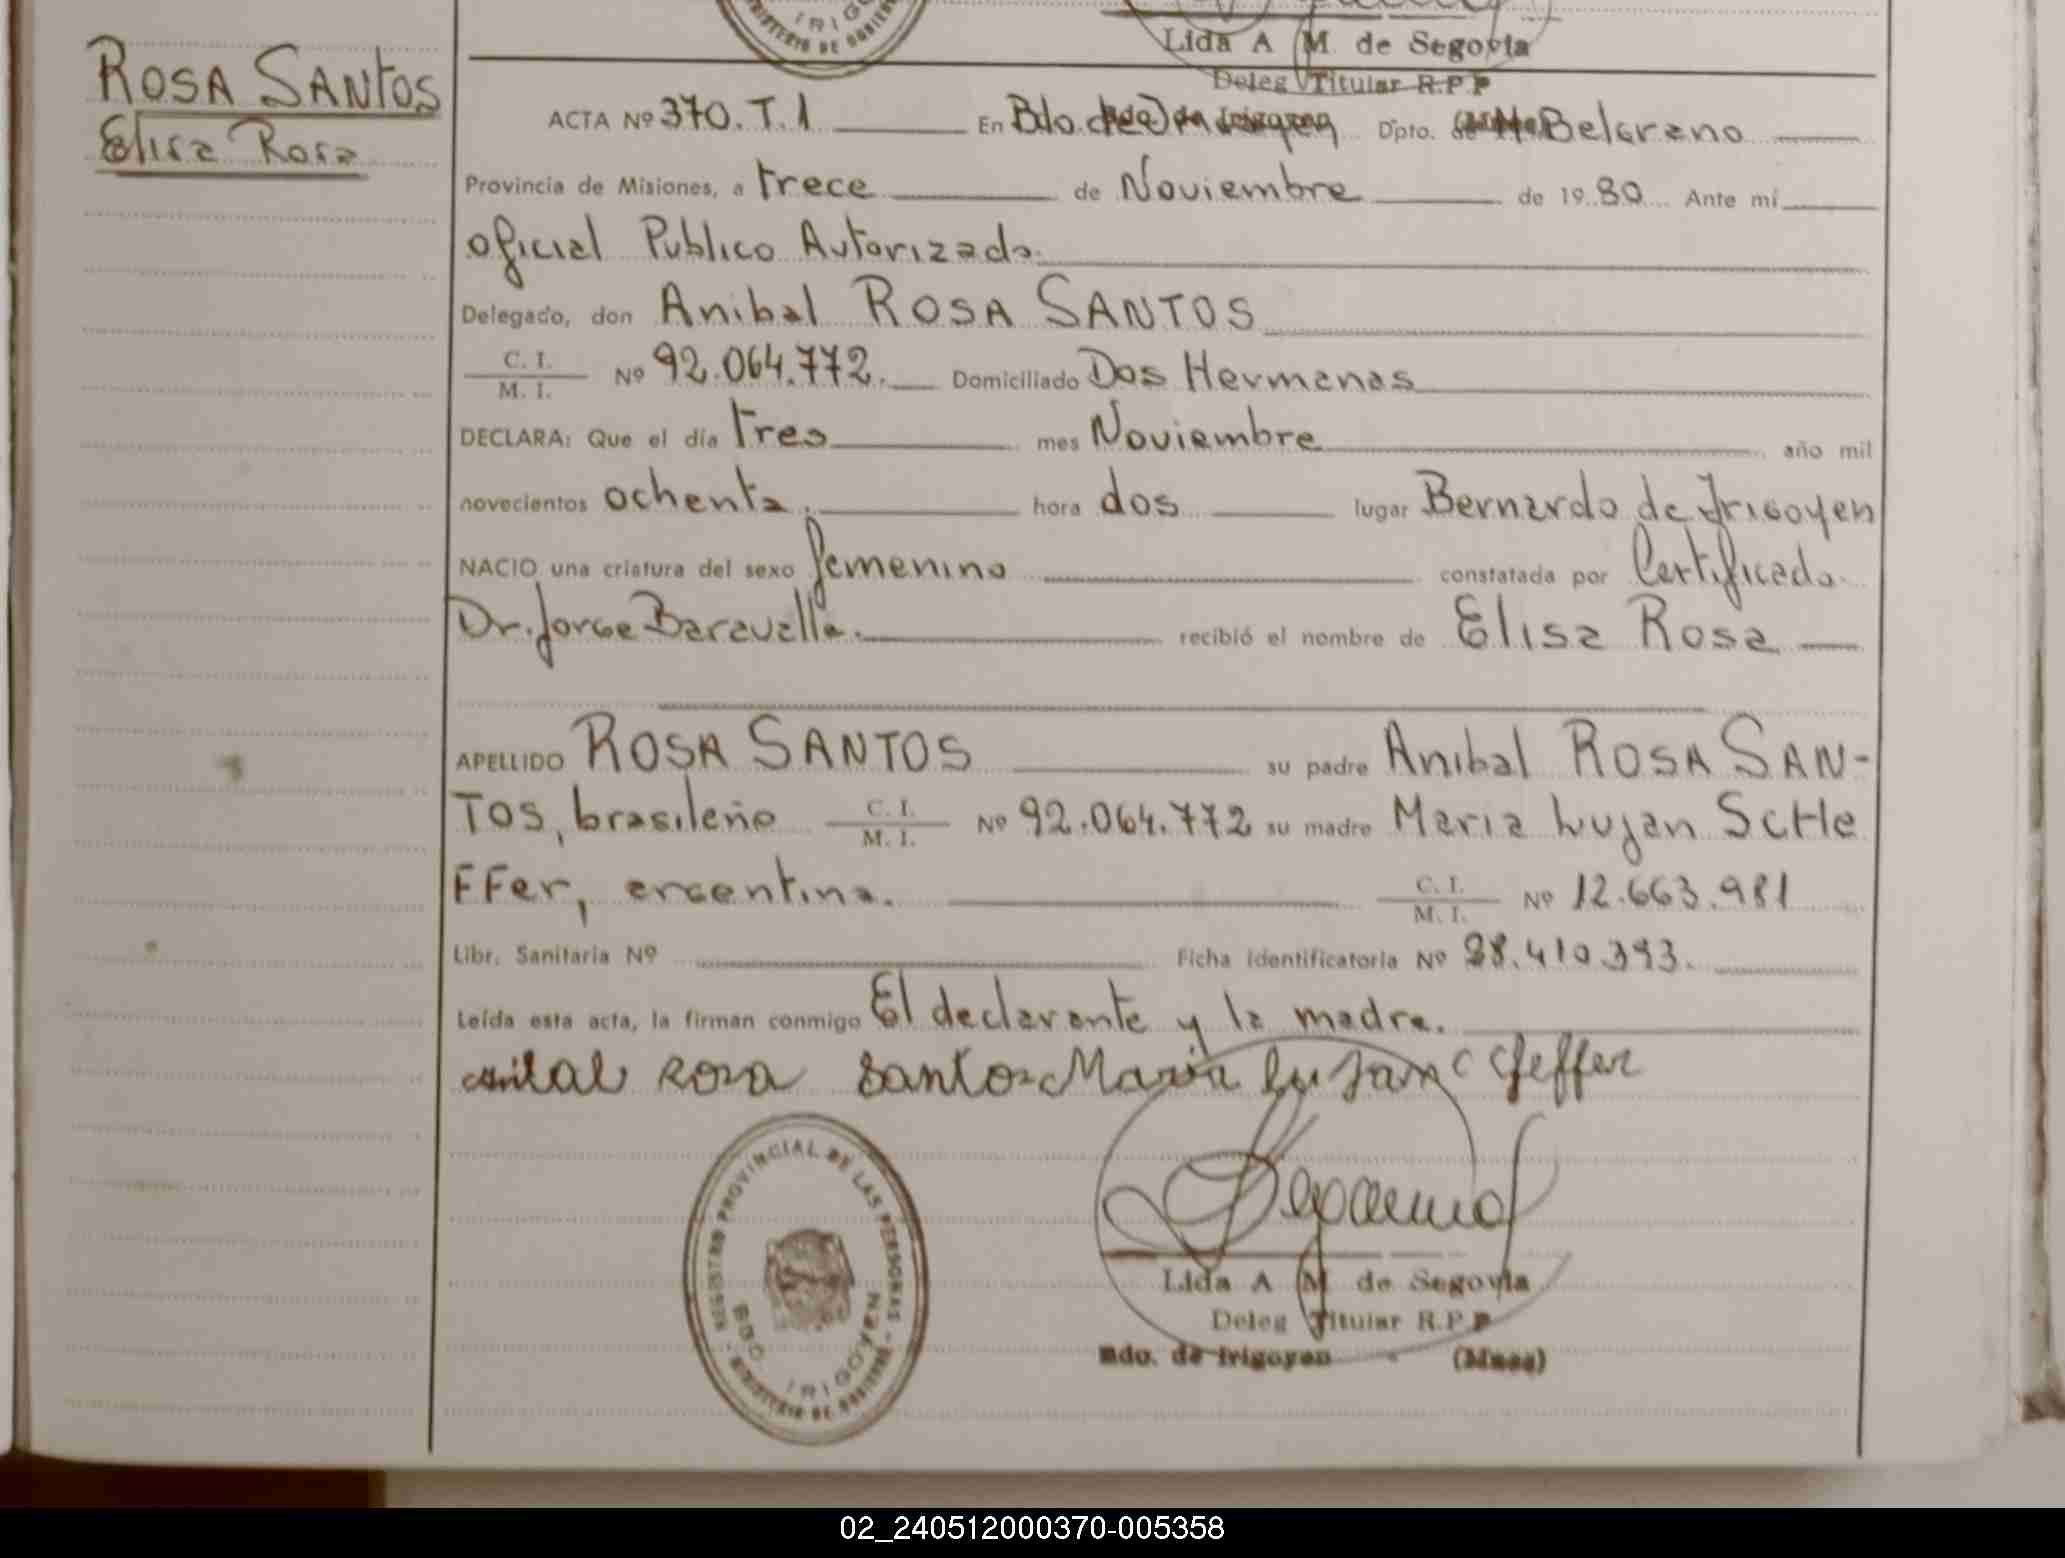 IRIGO
MINISTERIO DE GOBIERNO
Lida A M. de Segovia
Deleg Titular R.P.P
ROSA SANTOS
Elisa Rosa
ACTA Nº 370. T. 1 En Bdo. de Irigoyen Dpto. Belgrano
Provincia de Misiones, a trece de Noviembre de 19 80 Ante mí
oficial Publico Autorizado.
Delegado, don Anibal ROSA SANTOS
C. I. / M. I. Nº 92.064.772. Domiciliado Dos Hermanas
DECLARA: Que el día tres mes Noviembre año mil
novecientos ochenta. hora dos lugar Bernardo de Irigoyen
NACIO una criatura del sexo femenino constatada por Certificado
Dr. Jorge Baravalle. recibió el nombre de Elisa Rosa
APELLIDO ROSA SANTOS su padre Anibal ROSA SAN-
TOS, brasileño C. I. / M. I. Nº 92.064.772 su madre Maria Lujan ScHe
FFer, argentina. C. I. / M. I. Nº 12.663.981
Libr. Sanitaria Nº Ficha identificatoria Nº 28.410.393.
Leída esta acta, la firman conmigo El declarante y la madre.
Anibal Rosa Santos Maria Lujan Cheffer
REGISTRO PROVINCIAL DE LAS PERSONAS
BDO. IRIGOYEN
MINISTERIO DE GOBIERNO
Lida A M. de Segovia
Deleg Titular R.P.P
Bdo. de Irigoyen (Mnes)
02_240512000370-005358